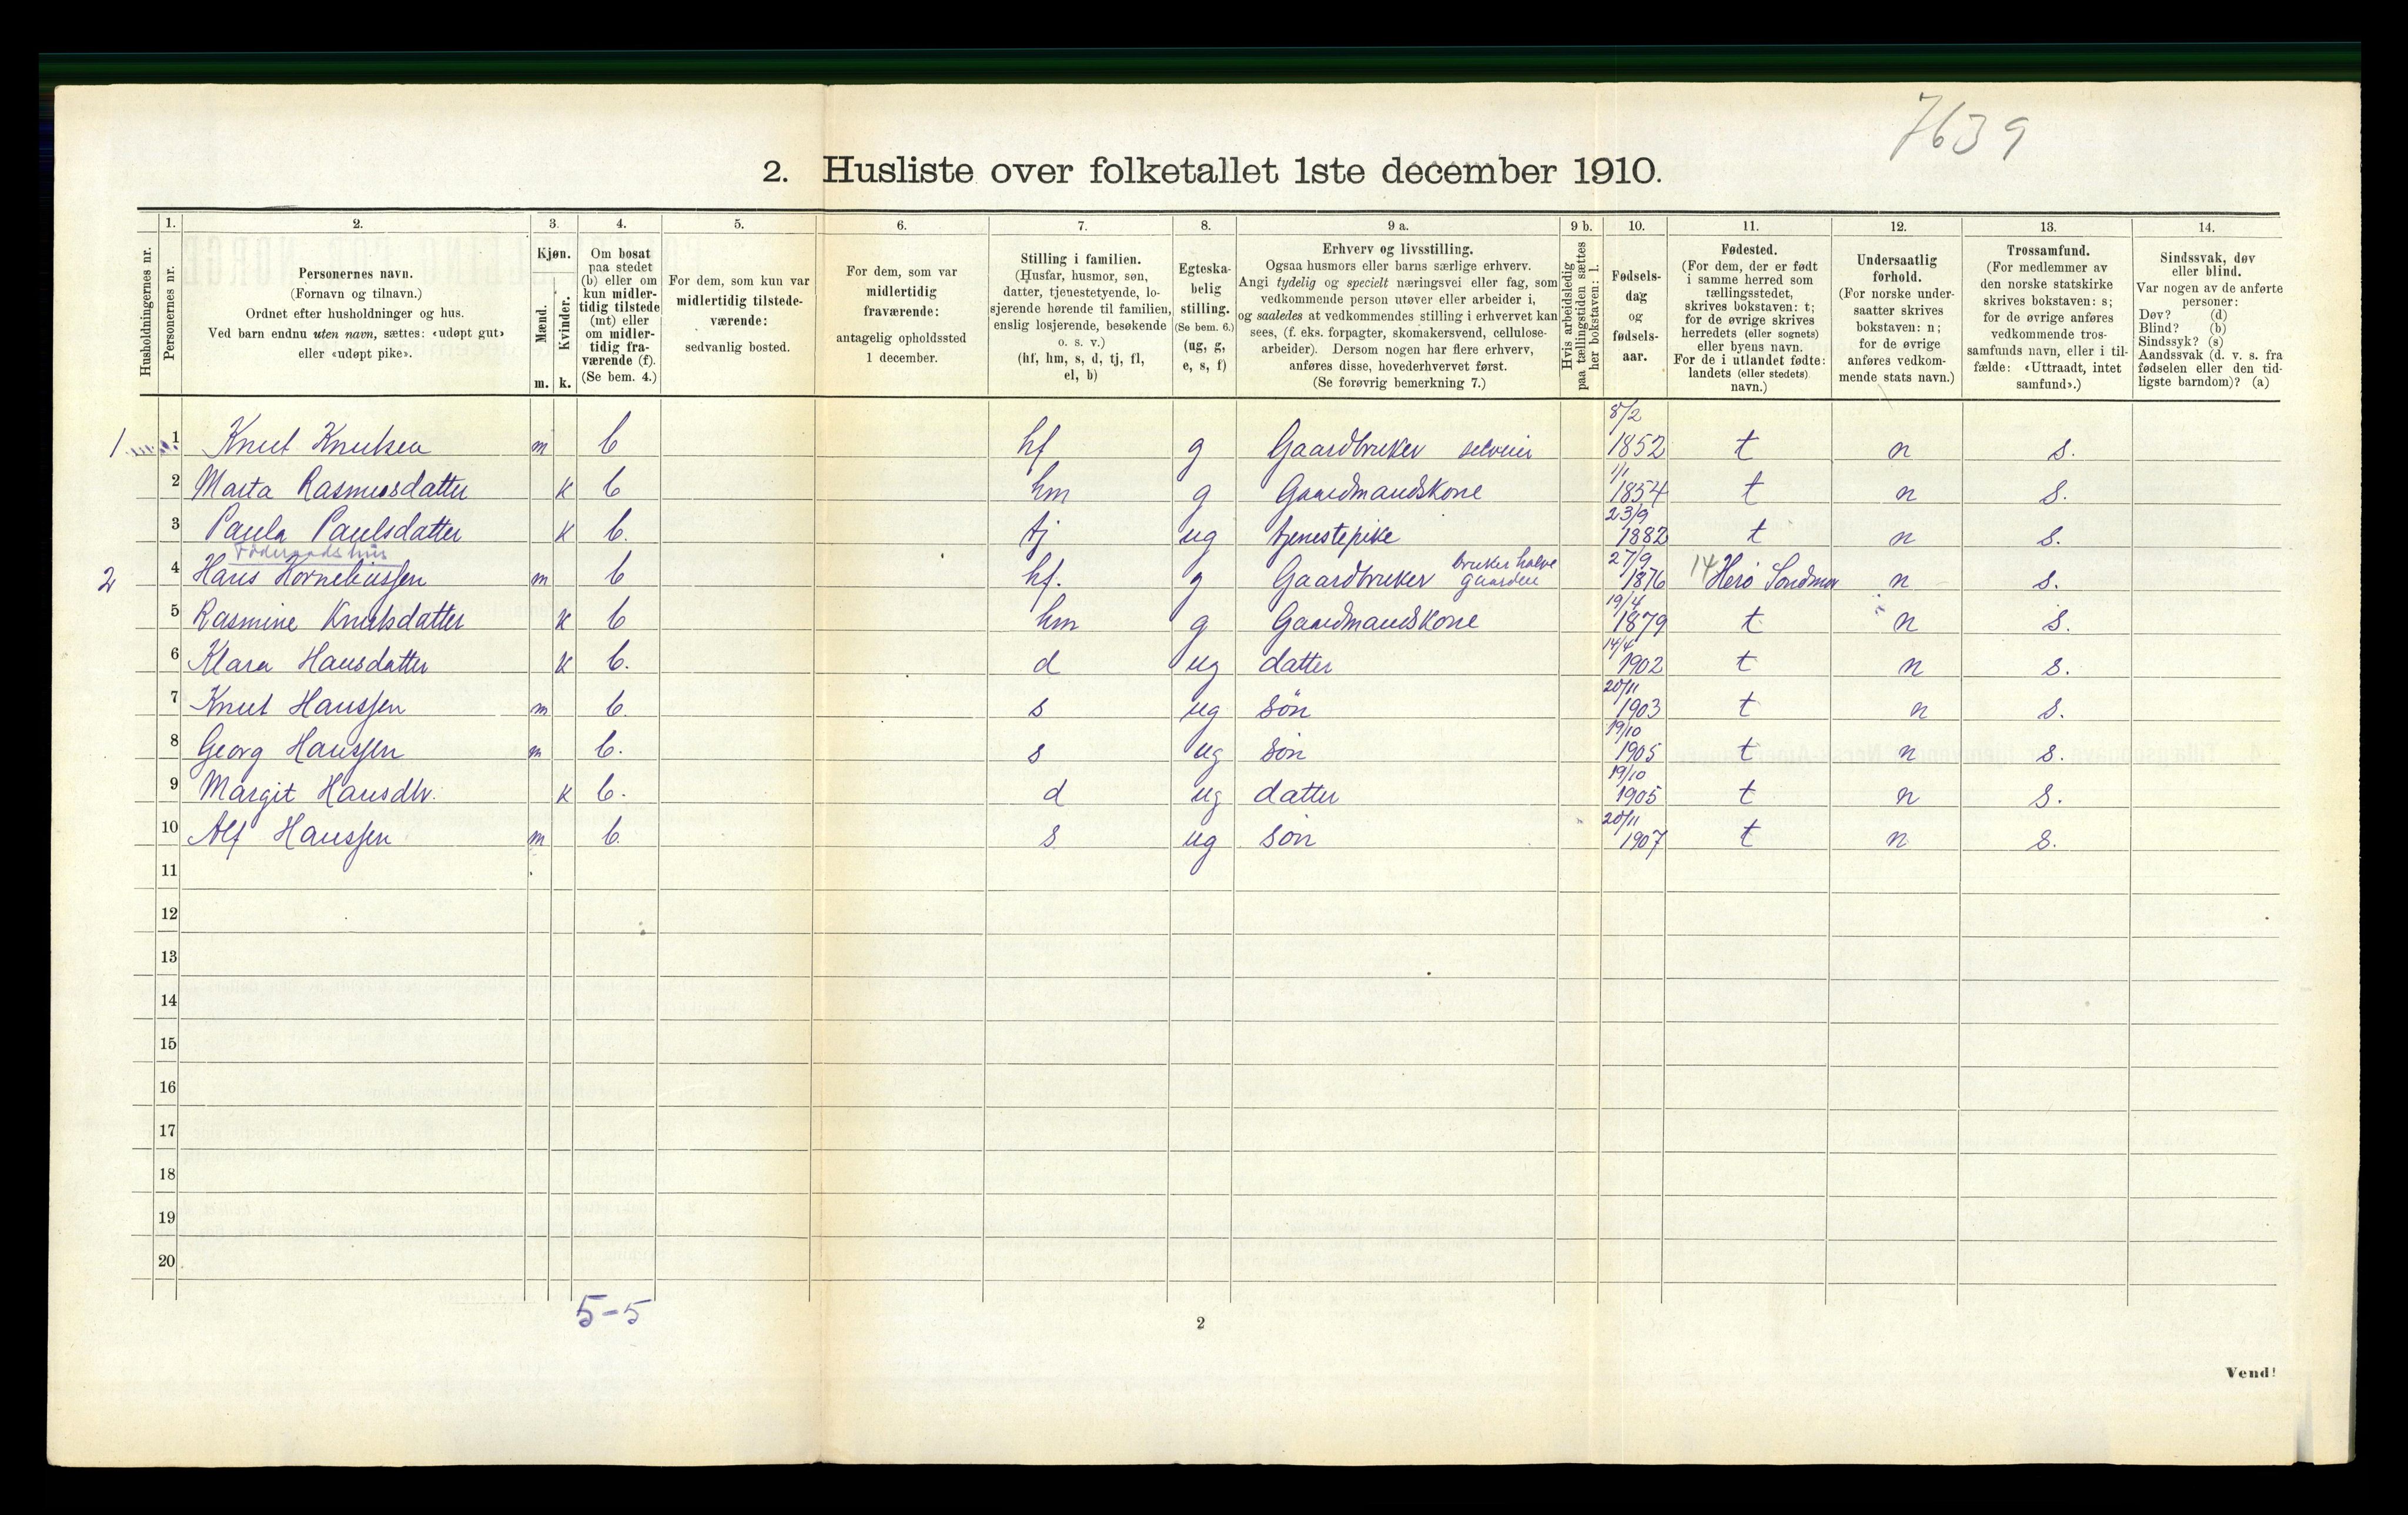 7639
2. Husliste over folketallet 1ste december 1910.
1. 2. 3. 4. 5. 6. 7. 8. 9 a. 9 b. 10. 11. 12. 13. 14.
Husholdningernes nr.
Personernes nr.
Personernes navn.
(Fornavn og tilnavn.)
Ordnet efter husholdninger og hus.
Ved barn endnu uten navn, sættes: «udøpt gut»
eller «udøpt pike».
Kjøn.
Mænd.
Kvinder.
m. k.
Om bosat
paa stedet
(b) eller om
kun midler-
tidig tilstede
(mt) eller
om midler-
tidig fra-
værende (f).
(Se bem. 4.)
For dem, som kun var
midlertidig tilstede-
værende:
sedvanlig bosted.
For dem, som var
midlertidig
fraværende:
antagelig opholdssted
1 december.
Stilling i familien.
(Husfar, husmor, søn,
datter, tjenestetyende, lo-
sjerende hørende til familien,
enslig losjerende, besøkende
o. s. v.)
(hf, hm, s, d, tj, fl,
el, b)
Egteska-
belig
stilling.
(Se bem. 6.)
(ug, g,
e, s, f)
Erhverv og livsstilling.
Ogsaa husmors eller barns særlige erhverv.
Angi tydelig og specielt næringsvei eller fag, som
vedkommende person utøver eller arbeider i,
og saaledes at vedkommendes stilling i erhvervet kan
sees, (f. eks. forpagter, skomakersvend, cellulose-
arbeider). Dersom nogen har flere erhverv,
anføres disse, hovederhvervet først.
(Se forøvrig bemerkning 7.)
Hvis arbeidsledig
paa tællingstiden sættes
her bokstaven: l.
Fødsels-
dag
og
fødsels-
aar.
Fødested.
(For dem, der er født
i samme herred som
tællingsstedet,
skrives bokstaven: t;
for de øvrige skrives
herredets (eller sognets)
eller byens navn.
For de i utlandet fødte:
landets (eller stedets)
navn.)
Undersaatlig
forhold.
(For norske under-
saatter skrives
bokstaven: n;
for de øvrige
anføres vedkom-
mende stats navn.)
Trossamfund.
(For medlemmer av
den norske statskirke
skrives bokstaven: s;
for de øvrige anføres
vedkommende tros-
samfunds navn, eller i til-
fælde: «Uttraadt, intet
samfund».)
Sindssvak, døv
eller blind.
Var nogen av de anførte
personer:
Døv? (d)
Blind? (b)
Sindssyk? (s)
Aandssvak (d. v. s. fra
fødselen eller den tid-
ligste barndom)? (a)
8/2
1 1 Knut Knutsen m b hf g Gaardbruker selveier 1852 t n s.
1/1
2 Marta Rasmusdatter k b hm g Gaardmandskone 1854 t n s.
23/9
3 Paula Paulsdatter k b. tj ug tjenestepike 1882 t n s.
Føderaadshus bruker halve 27/9
2 4 Hans Korneliussen m b hf. g Gaardbruker gaarden 1876 14 Herø Søndmør n s.
19/4
5 Rasmine Knutsdatter k b hm g Gaardmandskone 1879 t n s.
14/4
6 Klara Hansdatter k b. d ug datter 1902 t n s.
20/11
7 Knut Hanssen m b. s ug søn 1903 t n s.
19/10
8 Georg Hanssen m b. s ug søn 1905 t n s.
19/10
9 Margit Hansdtr. k b. d ug datter 1905 t n s.
20/11
10 Alf Hanssen m b. s ug søn 1907 t n s.
11
12
13
14
15
16
17
18
19
20
5-5
2
Vend!